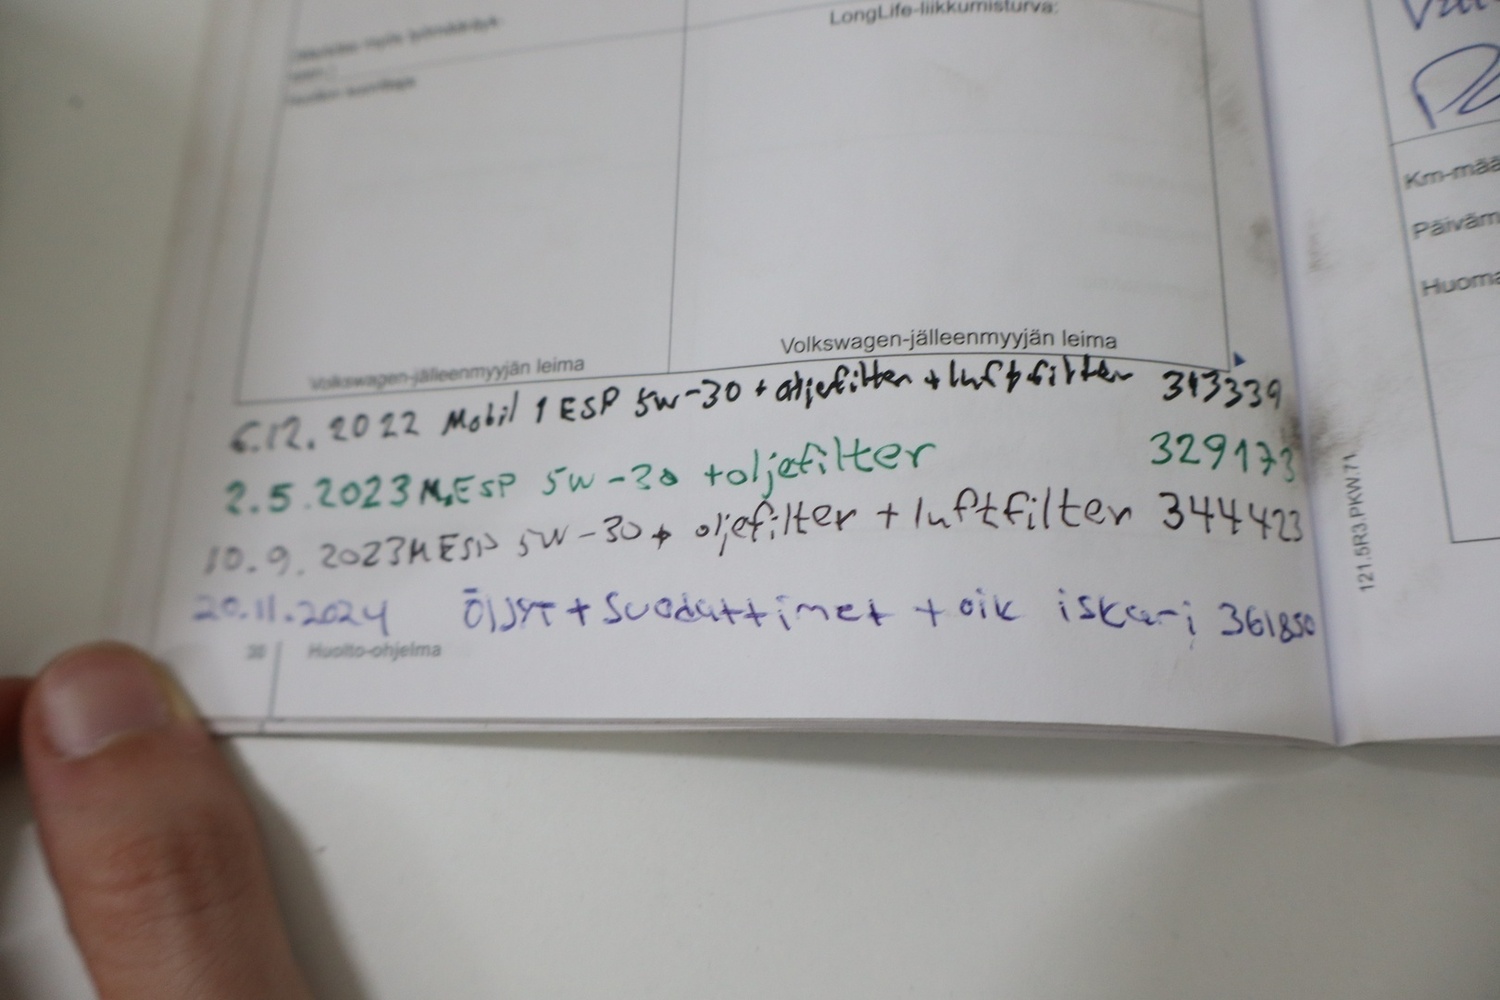 LongLife-liikkumisturva:
Volkswagen-jälleenmyyjän leima
Volkswagen-jälleenmyyjän leima
6.12.2022 Mobil 1 ESP 5W-30 + oljefilter + luftfilter 313339
2.5.2023 M.ESP 5W-30 +oljefilter 329173
10.9.2023 M ESP 5W-30 + oljefilter + luftfilter 344423
20.11.2024 Öljyt + Suodattimet + oik iskari 361850
38 Huolto-ohjelma
121.5R3.PKW.71
Km-mää
Päiväm
Huoma